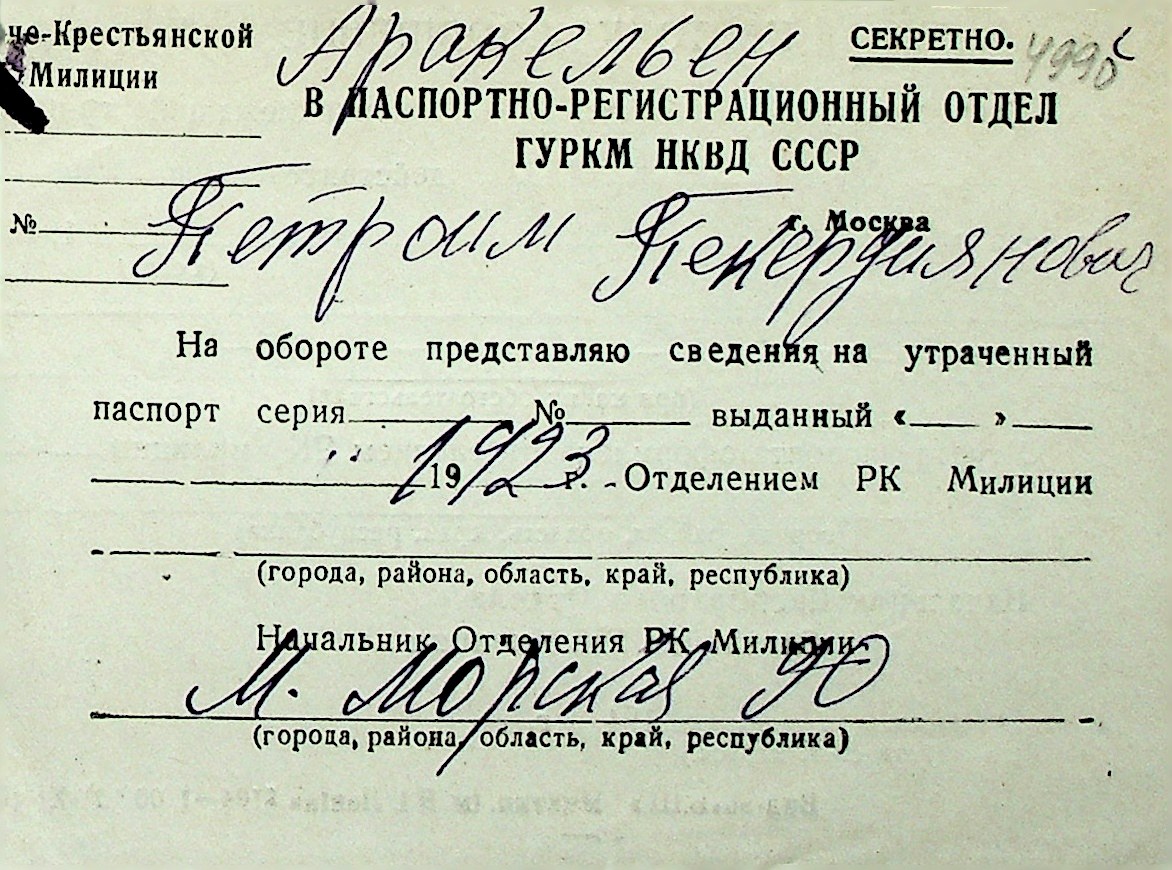 че-Крестьянской
Милиции
Аракельен
СЕКРЕТНО.
В ПАСПОРТНО-РЕГИСТРАЦИОННЫЙ ОТДЕЛ
ГУРКМ НКВД СССР
№
г. Москва
Петраим
На обороте представляю сведения на утраченный
паспорт серия № выданный « »
19 г. Отделением РК Милиции
1923
(города, района, область, край, республика)
Начальник Отделения РК Милиции
М. Морская 90
(города, района, область, край, республика)